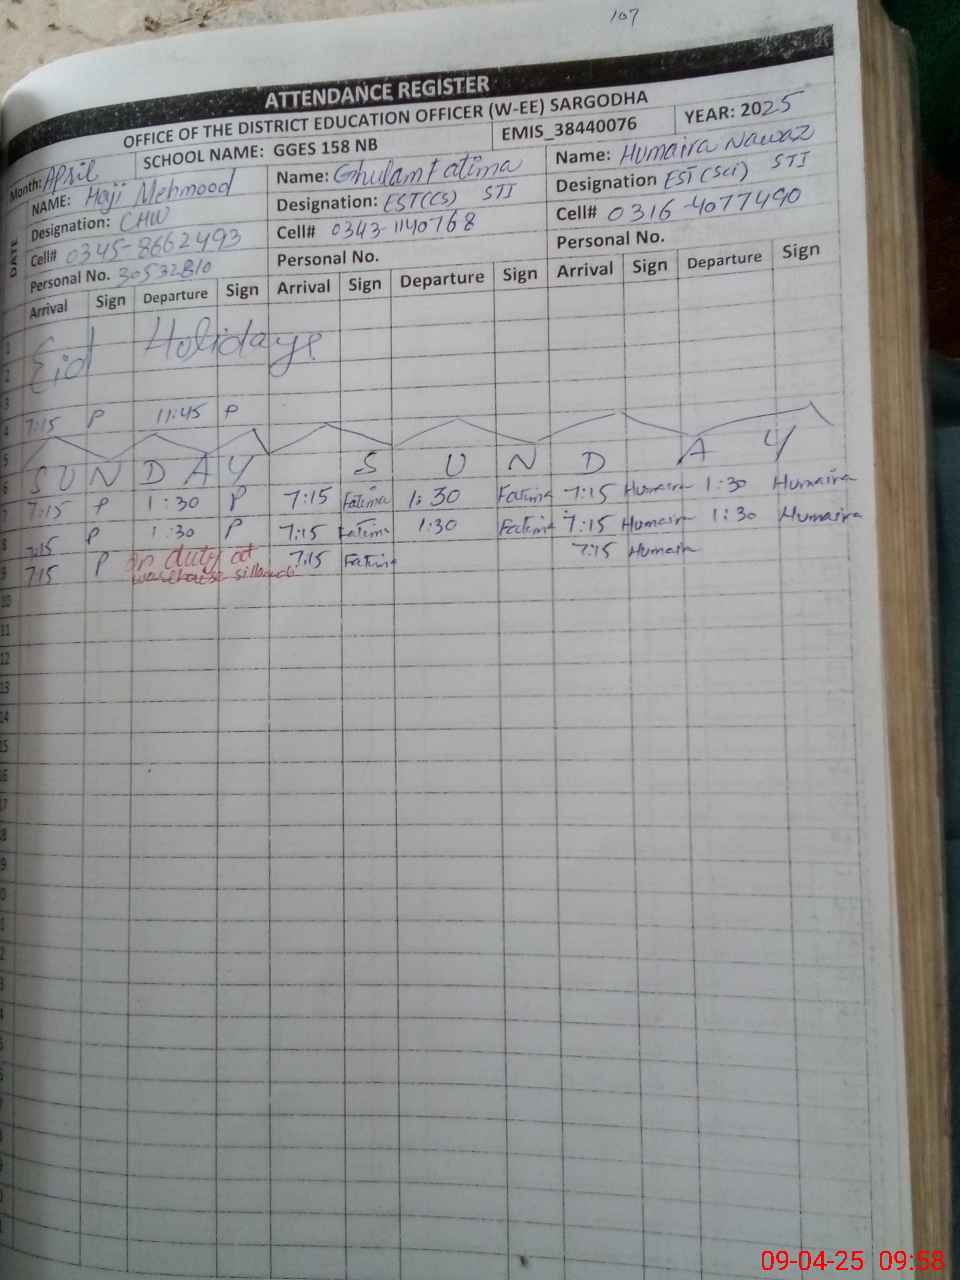 107
ATTENDANCE REGISTER
OFFICE OF THE DISTRICT EDUCATION OFFICER (W-EE) SARGODHA
Month: April SCHOOL NAME: GGES 158 NB EMIS_38440076 YEAR: 2025
DATE
NAME: Haji Mehmood Name: Ghulam Fatima Name: Humaira Nawaz
Designation: CHW Designation: EST(CS) STI Designation EST(Sci) STI
Cell# 0345-8662493 Cell# 0343-1140768 Cell# 0316-4077490
Personal No. 30532810 Personal No. Personal No.
Arrival Sign Departure Sign Arrival Sign Departure Sign Arrival Sign Departure Sign
1 Eid Holidays
2
3
4 7:15 P 11:45 P
5
6 S U N D A Y S U N D A Y
7 7:15 P 1:30 P 7:15 Fatima 1:30 Fatima 7:15 Humaira 1:30 Humaira
8 7:15 P 1:30 P 7:15 Fatima 1:30 Fatima 7:15 Humaira 1:30 Humaira
9 7:15 P on duty at 7:15 Fatima 7:15 Humaira
warehouse
10
11
12
13
14
15
16
17
8
9
0
1
2
3
09-04-25 09:58